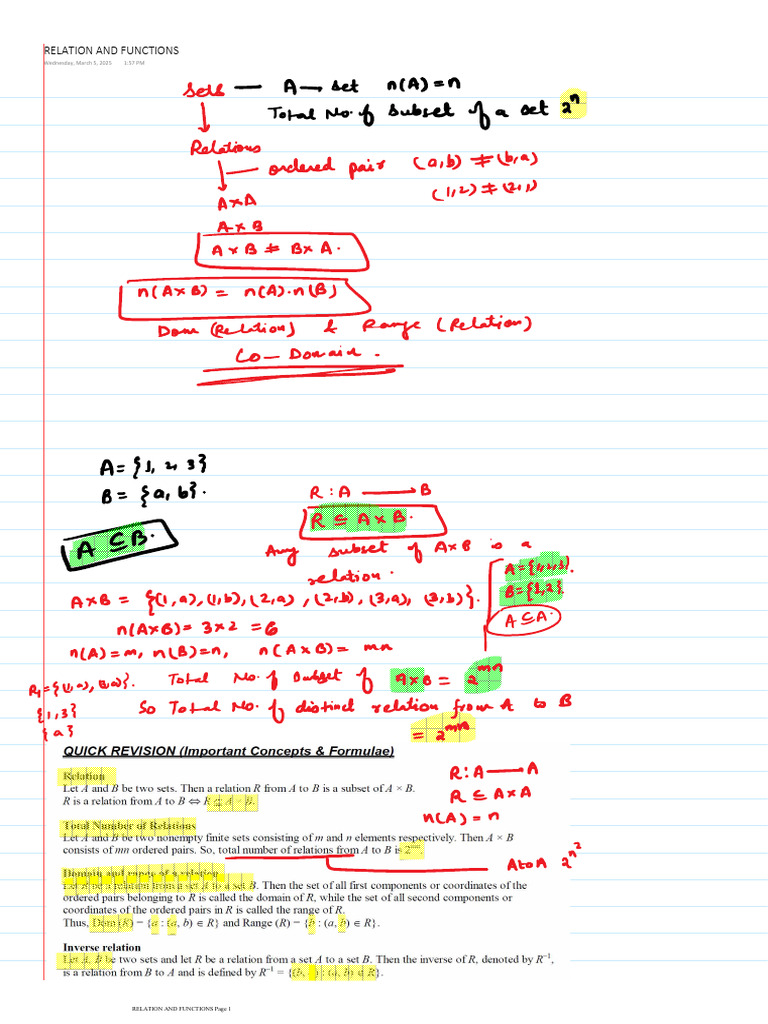 RELATION AND FUNCTIONS
Wednesday, March 5, 2025 1:37 PM
Sets — A → set n(A) = n
Total No. of subset of a set 2ⁿ
Relations
ordered pair (a,b) ≠ (b,a)
(1,2) ≠ (2,1)
A×A
A×B
A×B ≠ B×A.
n(A×B) = n(A).n(B)
Dom (Relation) & Range (Relation)
Co-Domain.
A = {1, 2, 3}
B = {a, b}.
R : A → B
R ⊆ A×B.
A ⊆ B.
Any subset of A×B is a
relation.
A = {1,2,3}.
B = {1,2}.
A ⊆ A.
A×B = {(1,a), (1,b), (2,a), (2,b), (3,a), (3,b)}.
n(A×B) = 3×2 = 6
n(A) = m, n(B) = n, n(A×B) = mn
Total No. of subset of A×B = 2ᵐⁿ
R₁ = {(1,a), (3,a)}.
{1,3}
{a}
So Total No. of distinct relation from A to B
= 2ᵐⁿ
QUICK REVISION (Important Concepts & Formulae)
Relation
Let A and B be two sets. Then a relation R from A to B is a subset of A × B.
R is a relation from A to B ⇔ R ⊆ A × B.
R : A → A
R ⊆ A×A
n(A) = n
Total Number of Relations
Let A and B be two nonempty finite sets consisting of m and n elements respectively. Then A × B
consists of mn ordered pairs. So, total number of relations from A to B is 2ᵐⁿ.
A to A 2^n²
Domain and range of a relation
Let R be a relation from a set A to a set B. Then the set of all first components or coordinates of the
ordered pairs belonging to R is called the domain of R, while the set of all second components or
coordinates of the ordered pairs in R is called the range of R.
Thus, Dom (R) = {a : (a, b) ∈ R} and Range (R) = {b : (a, b) ∈ R}.
Inverse relation
Let A, B be two sets and let R be a relation from a set A to a set B. Then the inverse of R, denoted by R⁻¹,
is a relation from B to A and is defined by R⁻¹ = {(b, a) : (a, b) ∈ R}.
RELATION AND FUNCTIONS Page 1